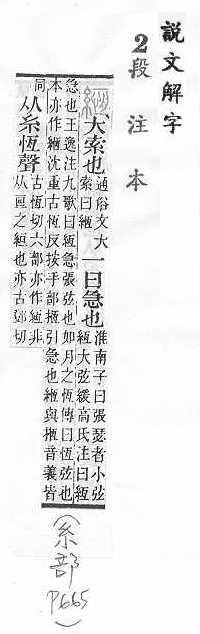 說文解字
2段注本
緪 大索也 通俗文大索曰緪 一曰急也 淮南子曰張瑟者小弦緪大弦緩高氏注曰緪
急也王逸注九歌曰緪急張弦也如月之恆傳曰恆弦也
本亦作緪沈重古恆反按手部揯引急也緪與揯音義皆
同 从糸恆聲 古恆切六部亦作絙非从亘之絙也亦古鄧切
(糸部 P665)